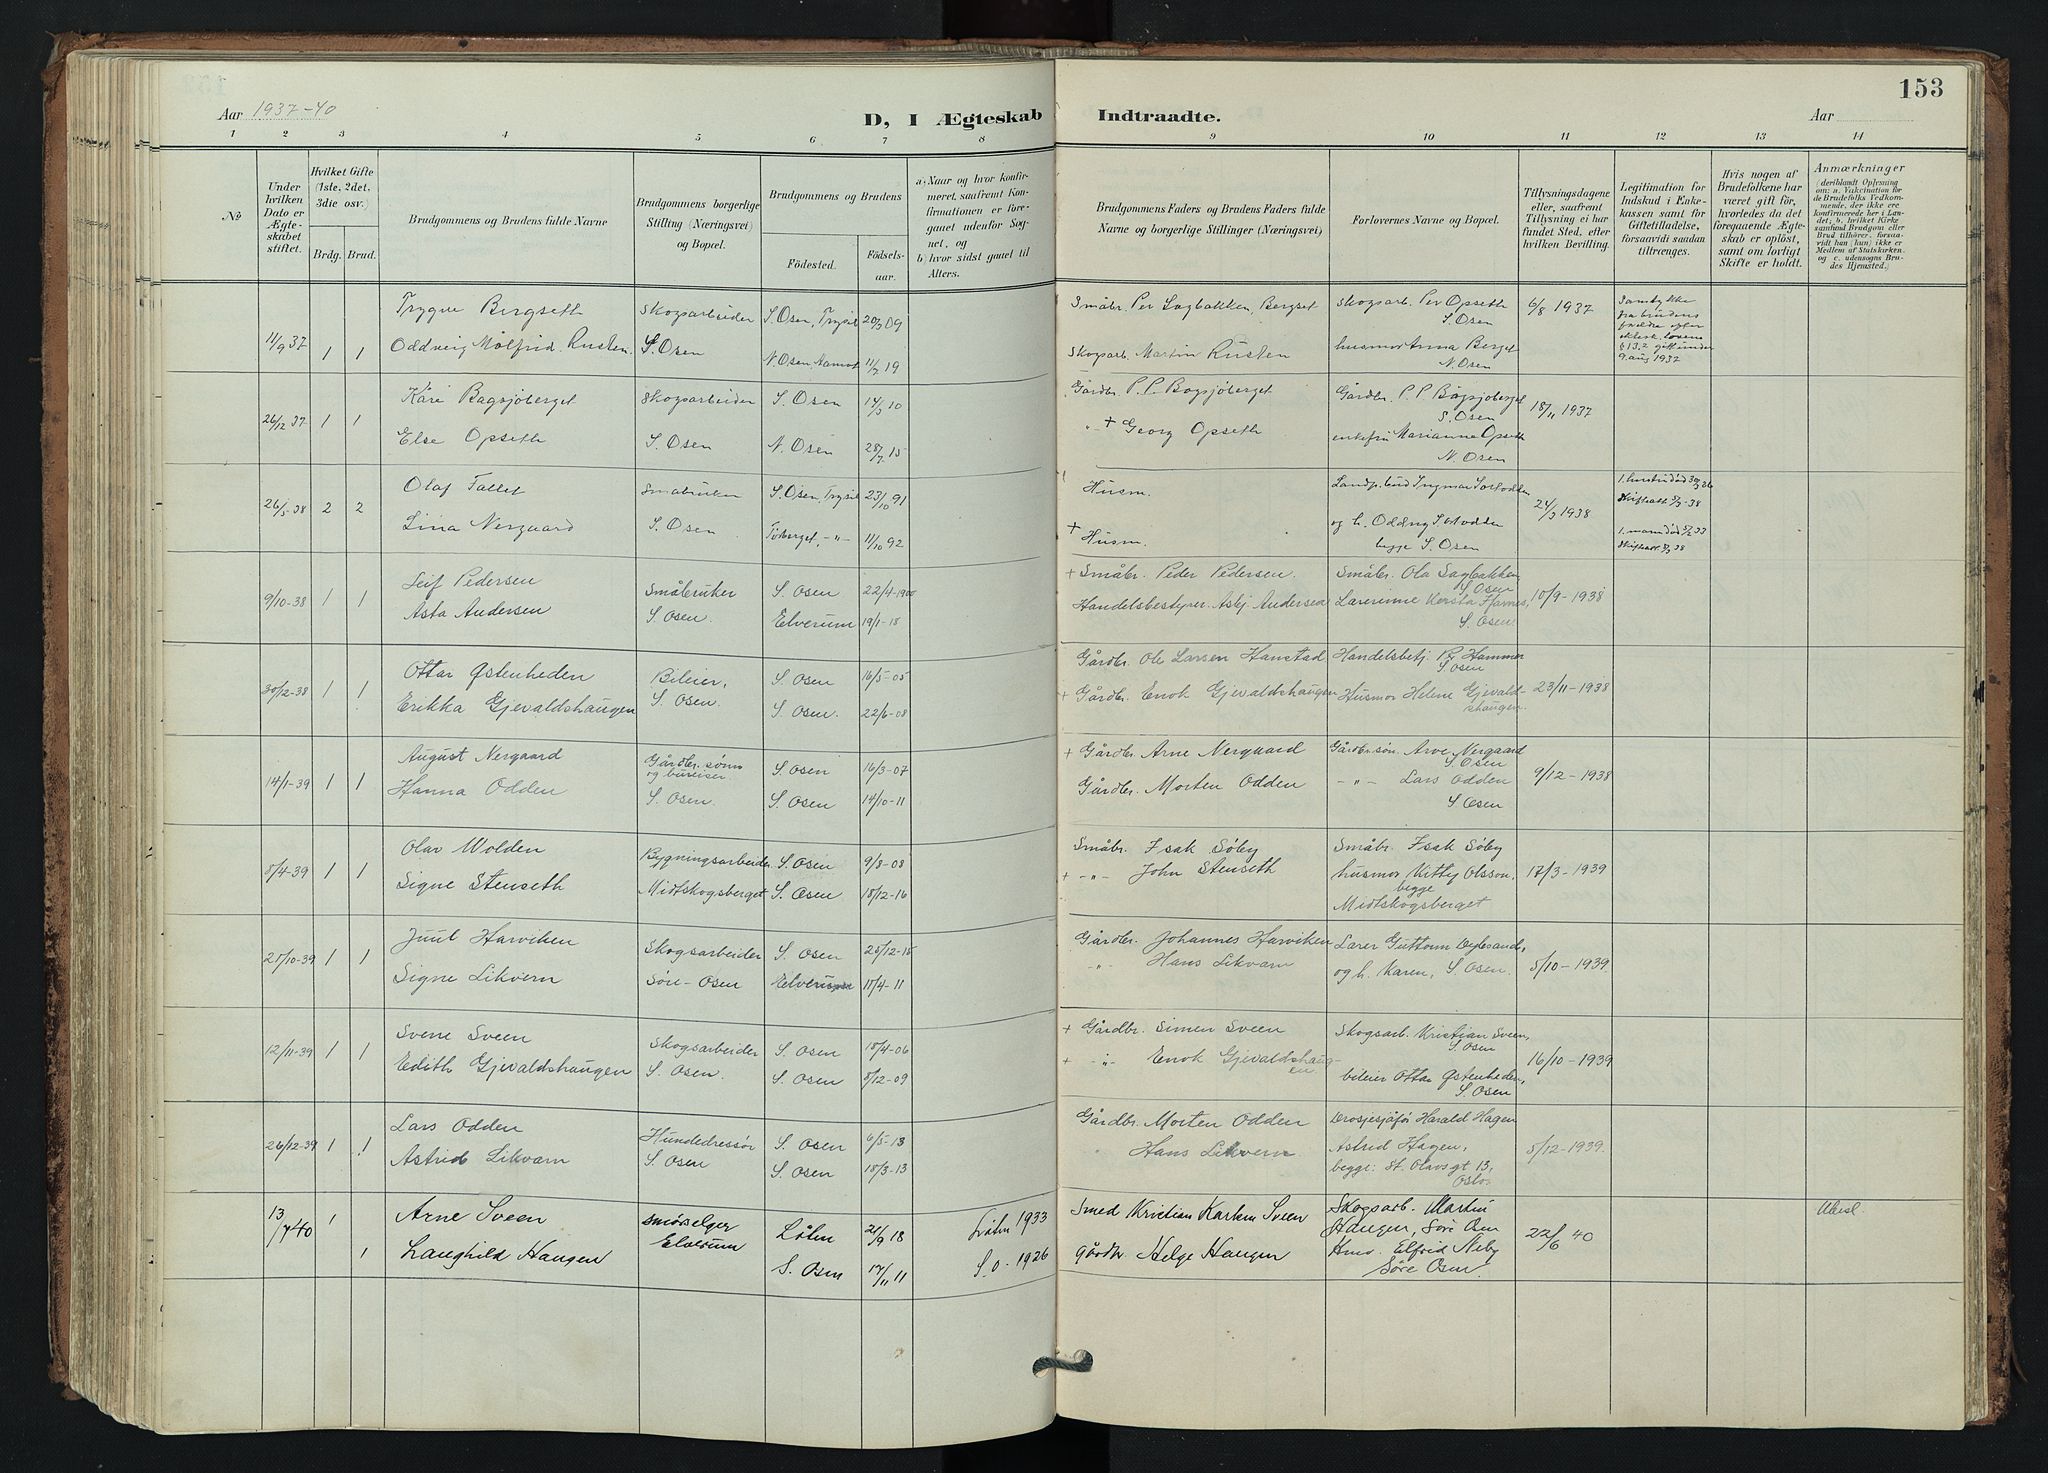 153
Aar 1937-40
D, I Ægteskab Indtraadte.
Aar
1 2 3 4 5 6 7 8 9 10 11 12 13 14
No
Under hvilken Dato er Ægteskabet stiftet.
Hvilket Gifte (1ste, 2det, 3die osv.)
Brdg. Brud.
Brudgommens og Brudens fulde Navne
Brudgommens borgerlige Stilling (Næringsvei) og Bopæl.
Brudgommens og Brudens
Födested.
Födselsaar.
a) Naar og hvor konfirmeret, saafremt Konfirmationen er foregaaet udenfor Sognet, og
b) hvor sidst gaaet til Alters.
Brudgommens Faders og Brudens Faders fulde Navne og borgerlige Stillinger (Næringsvei)
Forlovernes Navne og Bopæl.
Tillysningsdagene eller, saafremt Tillysning ei har fundet Sted, efter hvilken Bevilling.
Legitimation for Indskud i Enkekassen samt for Giftetilladelse, forsaavidt saadan tiltrænges.
Hvis nogen af Brudefolkene har været gift før, hvorledes da det foregaaende Ægteskab er oplöst, samt om lovligt Skifte er holdt.
Anmærkninger (deriblandt Oplysning om: a. Vakcination for de Brudefolks Vedkommende, der ikke ere konfirmerede her i Landet; b. hvilket Kirkesamfund Brudgom eller Brud tilhörer, forsaavidt han (hun) ikke er Medlem af Statskirken, og c. udensogns Brudes Hjemsted.)
11/9 37 1 1
Trygve Bergseth Skogsarbeider S. Osen, Trysil 20/3 09 Småbr. Per Sagbakken, Bergset Skogsarb. Per Opseth S. Osen 6/8 1937
Oddveig Målfrid Rusten S. Osen N. Osen, Aamot 11/7 19 Skogsarb. Martin Rusten husmor Anna Berget N. Osen
Samtykke fra brudens foreldre efter ektesk. lovens § 13.2 gitt under 9. aug 1937
26/12 37 1 1
Kåre Bagsjöberget Skogsarbeider S. Osen 14/3 10 Gårdbr. P. P. Bagsjöberget Gårdbr. P. P. Bagsjöberget S. Osen 18/11 1937
Else Opseth S. Osen N. Osen 28/7 15 -"- + Georg Opseth enkefru Marianne Opseth N. Osen
26/5-38 2 2
Olaf Fallet Småbruker S. Osen, Trysil 23/10 91 Husm. Landp. bud Ingmar Sortodden 24/3 1938
Lina Nergaard S. Osen Törberget, -"- 11/10 92 + Husm. og h. Oddny Sortodden begge S. Osen
9/10-38 1 1
Leif Pedersen Småbruker S. Osen 22/4-1900 + Småbr. Peder Pedersen. Småbr. Ola Sagbakken, S. Osen 10/9-1938
Asta Andersen S. Osen. Elverum 19/1-18 Handelsbestyrer Asbj. Andersen Lærerinne Kersta Hornes, S. Osen
30/12-38 1 1
Ottar Østenheden Bileier, S. Osen 16/5-05 Gårdbr. Ole Larsen Hanstad Handelsbetj. Per Hammer S. Osen 23/11-1938
Erikka Gjevaldshaugen S. Osen. S. Osen. 22/6-08 + Gårdbr. Enok Gjevaldshaugen Husmor Helene Gjevaldshaugen.
14/1-39 1 1
August Nergaard Gårdbr. sønn og bureiser. S. Osen 16/3-07 + Gårdbr. Arne Nergaard Gårdbr. søn. Arve Nergaard S. Osen 9/12-1938
Hanna Odden S. Osen. S. Osen 14/10-11 Gårdbr. Morten Odden -"- Lars Odden S. Osen
8/4-39 1 1
Olav Wolden Bygningsarbeider S. Osen 9/8-08 Småbr. Isak Söby Småbr. Isak Söby 17/3-1939
Signe Stenseth Midtskogsberget S. Osen 18/12-16 + -"- John Stenseth husmor Kitty Olsson, begge Midtskogsberget
21/10-39 1 1
Juul Harviken Skogsarbeider S. Osen 25/12-15 Gårdbr. Johannes Harviken Lærer Guttorm 5/10-1939
Signe Likvern Søre-Osen Elverum 17/4-11 -"- Hans Likvarn og h. Karen, S. Osen.
12/11-39 1 1
Svene Sveen Skogsarbeider S. Osen 18/4-06 + Gårdbr. Simen Sveen Skogsarb. Kristian Sveen, S. Osen 16/10-1939
Edith Gjevaldshaugen S. Osen. S. Osen 8/12-09 + -"- Enok Gjevaldshaugen bileier Ottar Østenheden, S. Osen
26/12-39 1 1
Lars Odden Hundedressør S. Osen 6/5-13 Gårdbr. Morten Odden Drosjesjåfø Harald Hagen 5/12-1939
Astrid Likvarn S. Osen S. Osen 18/3-13 Hans Likvern Astrid Hagen, begge: St. Olavsgt 13, Oslo.
13/7 40 1 1
Arne Sveen smørselger Løten 21/9 18 Løten 1933 Smed Kristian Karlsen Sveen Skogsarb. Martin Haugen, Søre Osen 22/6 40
Laughild Haugen Elverum S. Osen 17/11 11 S. O. 1926 gårdbr. Helge Haugen Hmo. Elfrid Neby Søre Osen